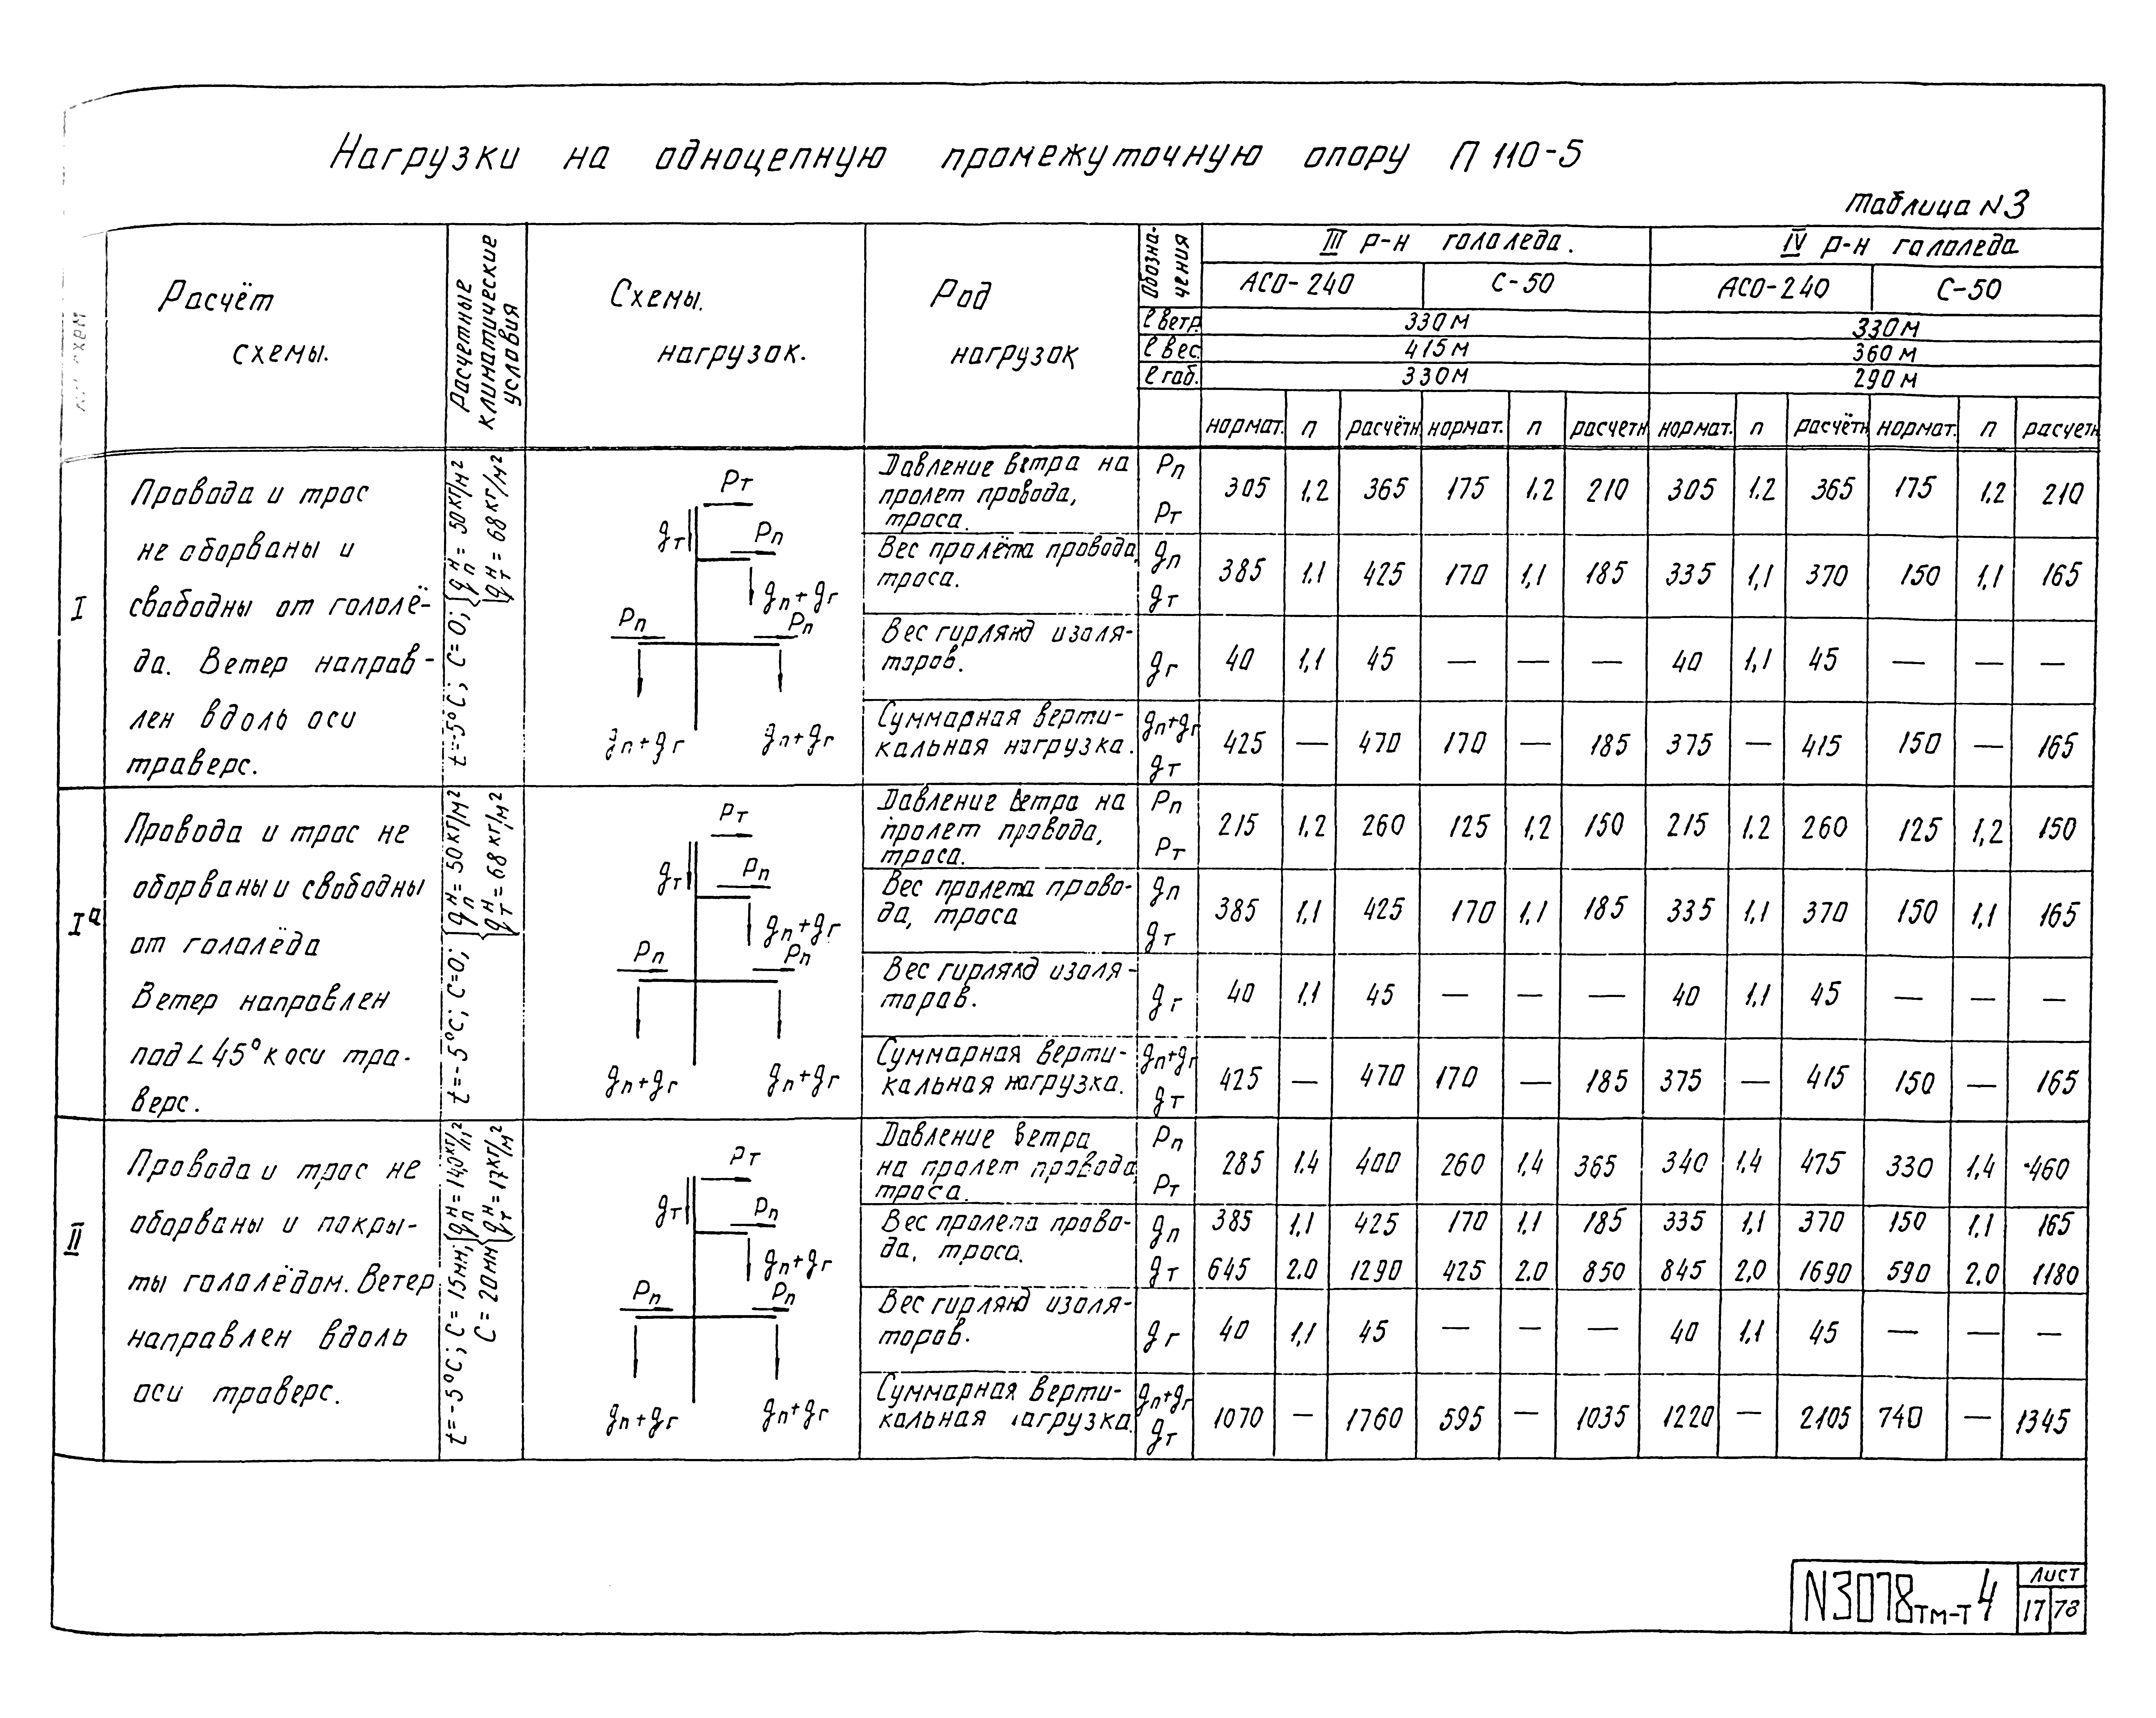 Нагрузки на одноцепную промежуточную опору П 110-5
Таблица N3
Расчёт схемы.
Расчетные климатические условия
Схемы. нагрузок.
Род нагрузок
Обозна-чения
III р-н гололеда.
IV р-н гололеда
АСО-240 С-50 АСО-240 С-50
l ветр. 330 м 330 м
l вес. 415 м 360 м
l габ. 330 м 290 м
нормат. п расчётн нормат. п расчетн нормат. п расчётн нормат. п расчетн
I
Провода и трос
не оборваны и
свободны от гололё-
да. Ветер направ-
лен вдоль оси
траверс.
t=-5°C; C=0; { qнп = 50 кг/м² { qнт = 68 кг/м²
Рт
gт Рп
gп+gг
Рп Рп
gп+gг gп+gг
Давление ветра на пролет провода, троса. Рп Рт 305 1.2 365 175 1,2 210 305 1.2 365 175 1,2 210
Вес пролёта провода, троса. gп gт 385 1.1 425 170 1,1 185 335 1,1 370 150 1,1 165
Вес гирлянд изоля-торов. gг 40 1,1 45 — — — 40 1,1 45 — — —
Суммарная верти-кальная нагрузка. gп+gг gт 425 — 470 170 — 185 375 — 415 150 — 165
Iа
Провода и трос не
оборваны и свободны
от гололёда
Ветер направлен
под ∠ 45° к оси тра-
верс.
t=-5°C; C=0; { qнп = 50 кг/м² { qнт = 68 кг/м²
Рт
gт Рп
gп+gг
Рп Рп
gп+gг gп+gг
Давление ветра на пролет провода, троса. Рп Рт 215 1.2 260 125 1,2 150 215 1.2 260 125 1,2 150
Вес пролета прово-да, троса gп gт 385 1.1 425 170 1,1 185 335 1,1 370 150 1,1 165
Вес гирлянд изоля-торов. gг 40 1.1 45 — — — 40 1,1 45 — — —
Суммарная верти-кальная нагрузка. gп+gг gт 425 — 470 170 — 185 375 — 415 150 — 165
II
Провода и трос не
оборваны и покры-
ты гололёдом. Ветер
направлен вдоль
оси траверс.
t=-5°C; C=15мм, C=20мм { qнп = 14,0 кг/м² { qнт = 17 кг/м²
Рт
gт Рп
gп+gг
Рп Рп
gп+gг gп+gг
Давление ветра на пролет провода, троса. Рп Рт 285 1.4 400 260 1,4 365 340 1.4 475 330 1,4 460
Вес пролета прово-да, троса. gп 385 1,1 425 170 1,1 185 335 1,1 370 150 1.1 165
gт 645 2.0 1290 425 2.0 850 845 2,0 1690 590 2.0 1180
Вес гирлянд изоля-торов. gг 40 1,1 45 — — — 40 1.1 45 — — —
Суммарная верти-кальная нагрузка. gп+gг gт 1070 — 1760 595 — 1035 1220 — 2105 740 — 1345
N3078тм-т4
Лист
17 78